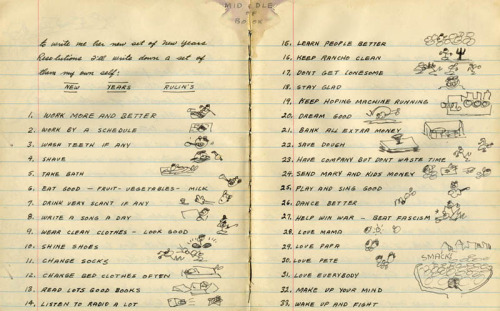 MIDDLE
OF
BOOK
to write me her new set of New Years
Resolutions I'll write down a set of
them my own self:
NEW YEARS RULIN'S
1. WORK MORE AND BETTER
2. WORK BY A SCHEDULE
3. WASH TEETH IF ANY
4. SHAVE
5. TAKE BATH
6. EAT GOOD - FRUIT - VEGETABLES - MILK
7. DRINK VERY SCANT IF ANY
8. WRITE A SONG A DAY
9. WEAR CLEAN CLOTHES - LOOK GOOD
10. SHINE SHOES
11. CHANGE SOCKS
12. CHANGE BED CLOTHES OFTEN
13. READ LOTS GOOD BOOKS
14. LISTEN TO RADIO A LOT
15. LEARN PEOPLE BETTER
16. KEEP RANCHO CLEAN
17. DONT GET LONESOME
18. STAY GLAD
19. KEEP HOPING MACHINE RUNNING
20. DREAM GOOD
21. BANK ALL EXTRA MONEY
22. SAVE DOUGH
23. HAVE COMPANY BUT DONT WASTE TIME
24. SEND MARY AND KIDS MONEY
25. PLAY AND SING GOOD
26. DANCE BETTER
27. HELP WIN WAR - BEAT FASCISM
28. LOVE MAMA
29. LOVE PAPA
30. LOVE PETE
31. LOVE EVERYBODY
32. MAKE UP YOUR MIND
33. WAKE UP AND FIGHT
SMACK